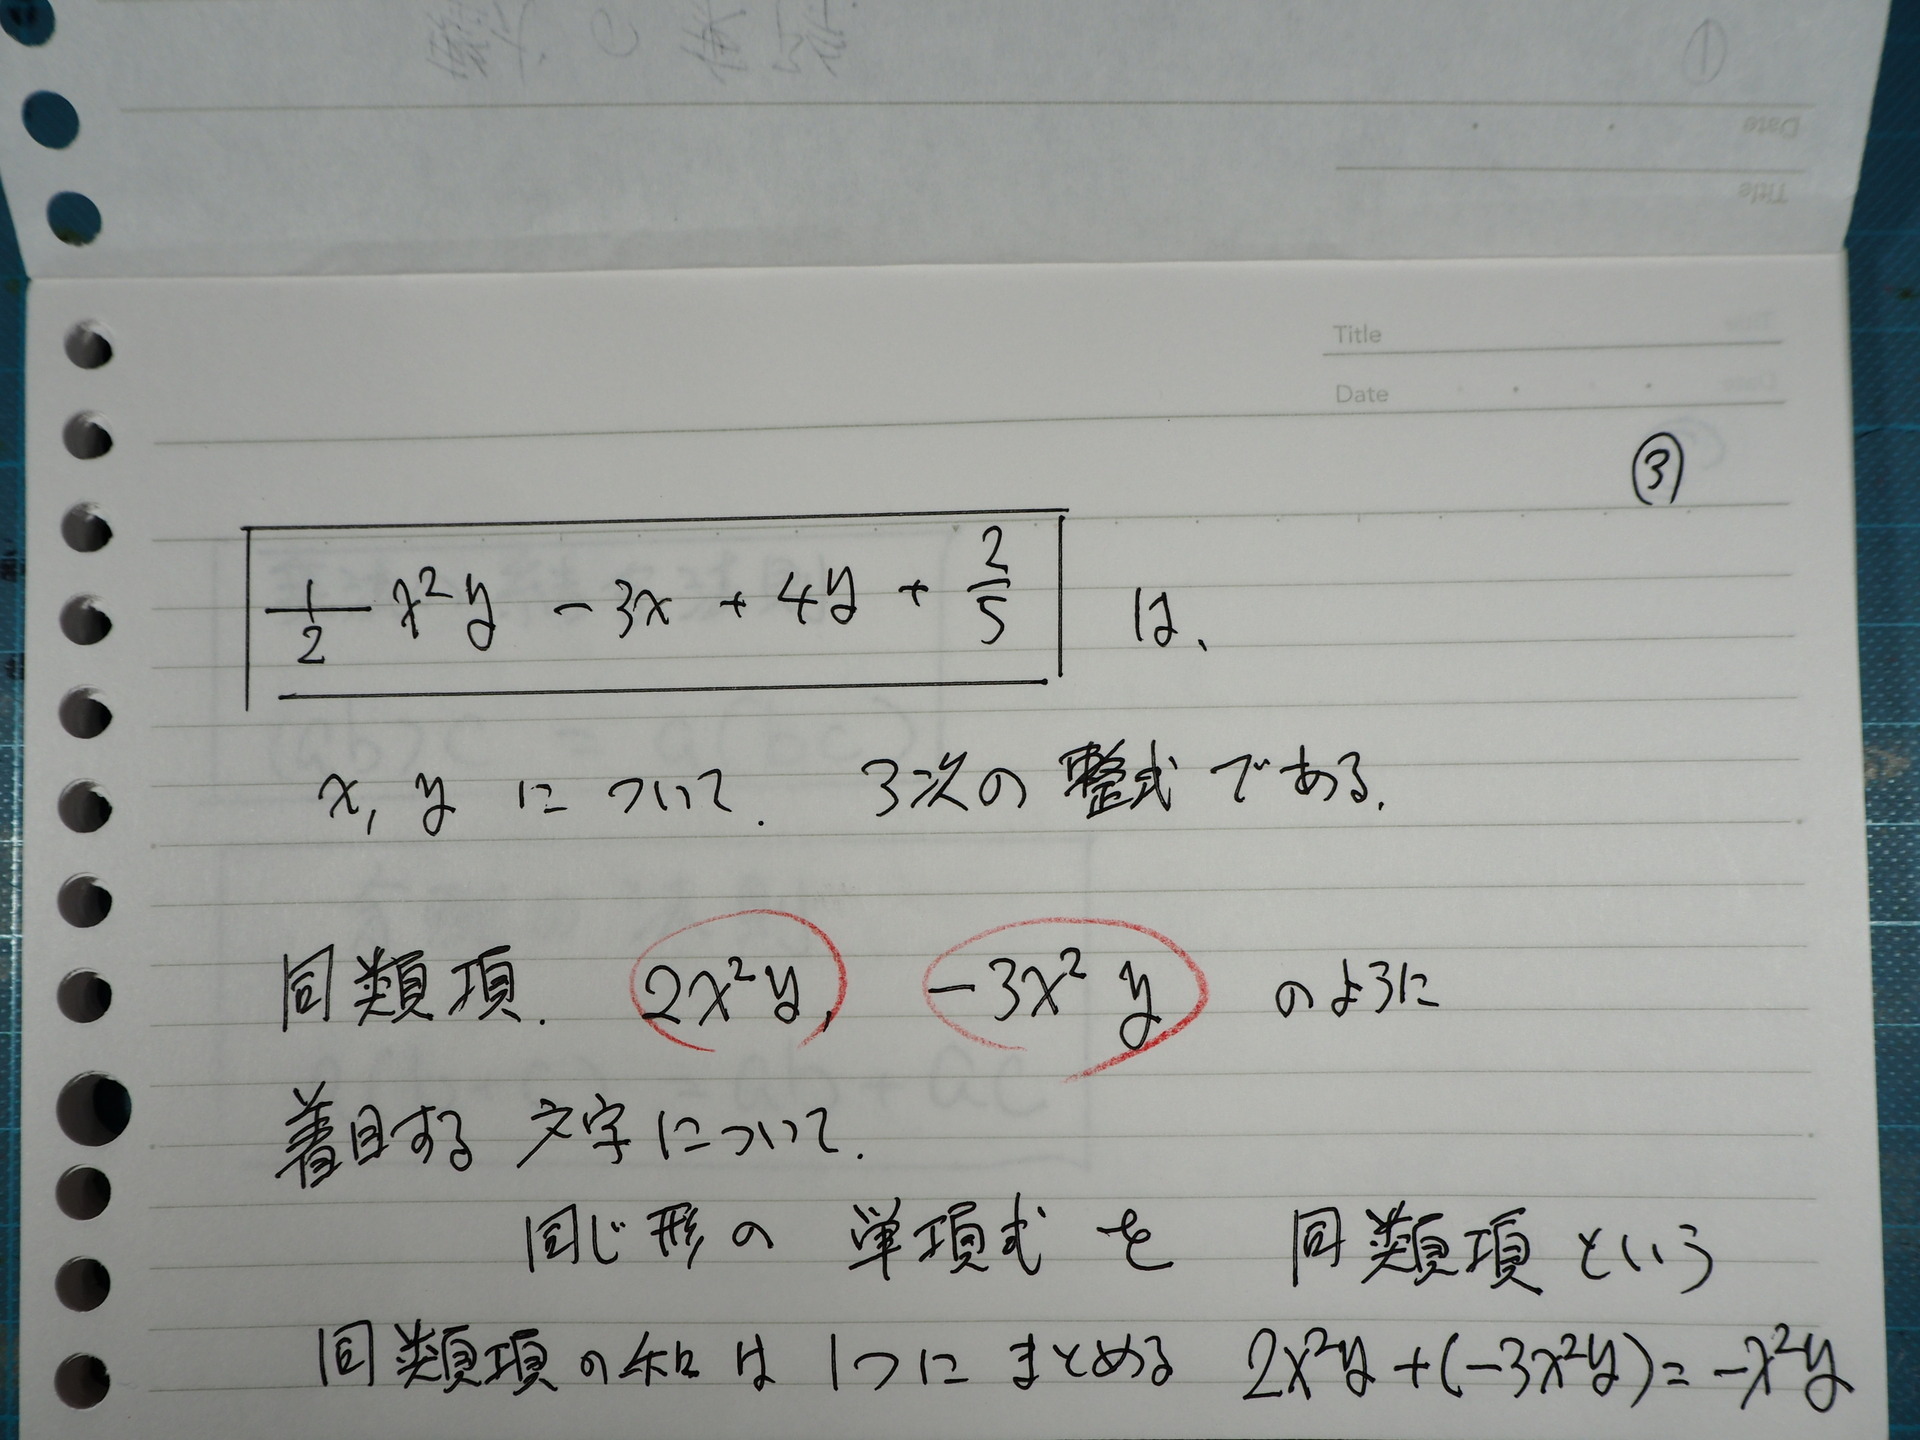 Date
Title
Title
Date
③
1/2 x²y - 3x + 4y + 2/5 は、
x, y について、 3次の 整式 である。
同類項、 2x²y, -3x²y のように
着目する 文字について、
同じ形の 単項式 を 同類項 という
同類項の和は 1つに まとめる 2x²y + (-3x²y) = -x²y